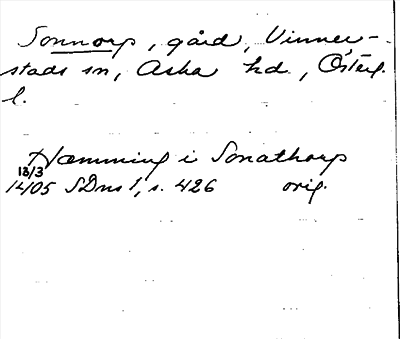 Sonnorp, gård, Vinner-
stads sn, Aska hd., Österg.
l.
Hæmming i Sonathorp
13/3
1405 SDns 1, s. 426 orig.